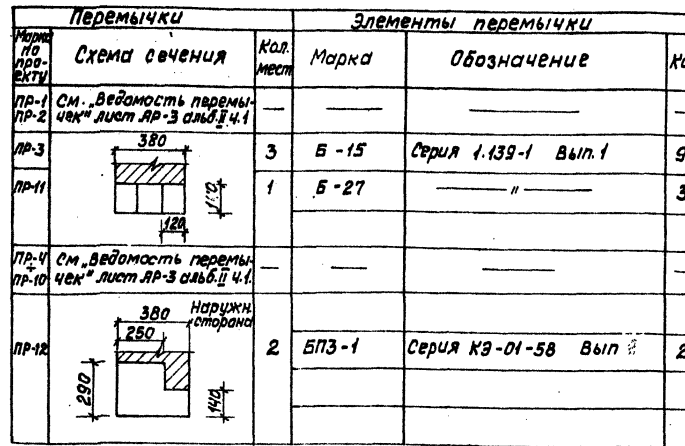 Перемычки
Элементы перемычки
Марка по про-екту
Схема сечения
Кол. мест
Марка
Обозначение
ПР-1
ПР-2
См. „Ведомость перемы-
чек" лист АР-3 альб. II ч.1
— — —
ПР-3
380
3 Б-15 Серия 1.139-1 Вып.1 9
ПР-11
1 Б-27 — " — 3
120
ПР-4
÷
ПР-10
См. „Ведомость перемы-
чек" лист АР-3 альб. II ч.1.
— — —
380
Наружн.
сторона
250
ПР-12
2 БПЗ-1 Серия КЭ-01-58 Вып 2
290
140